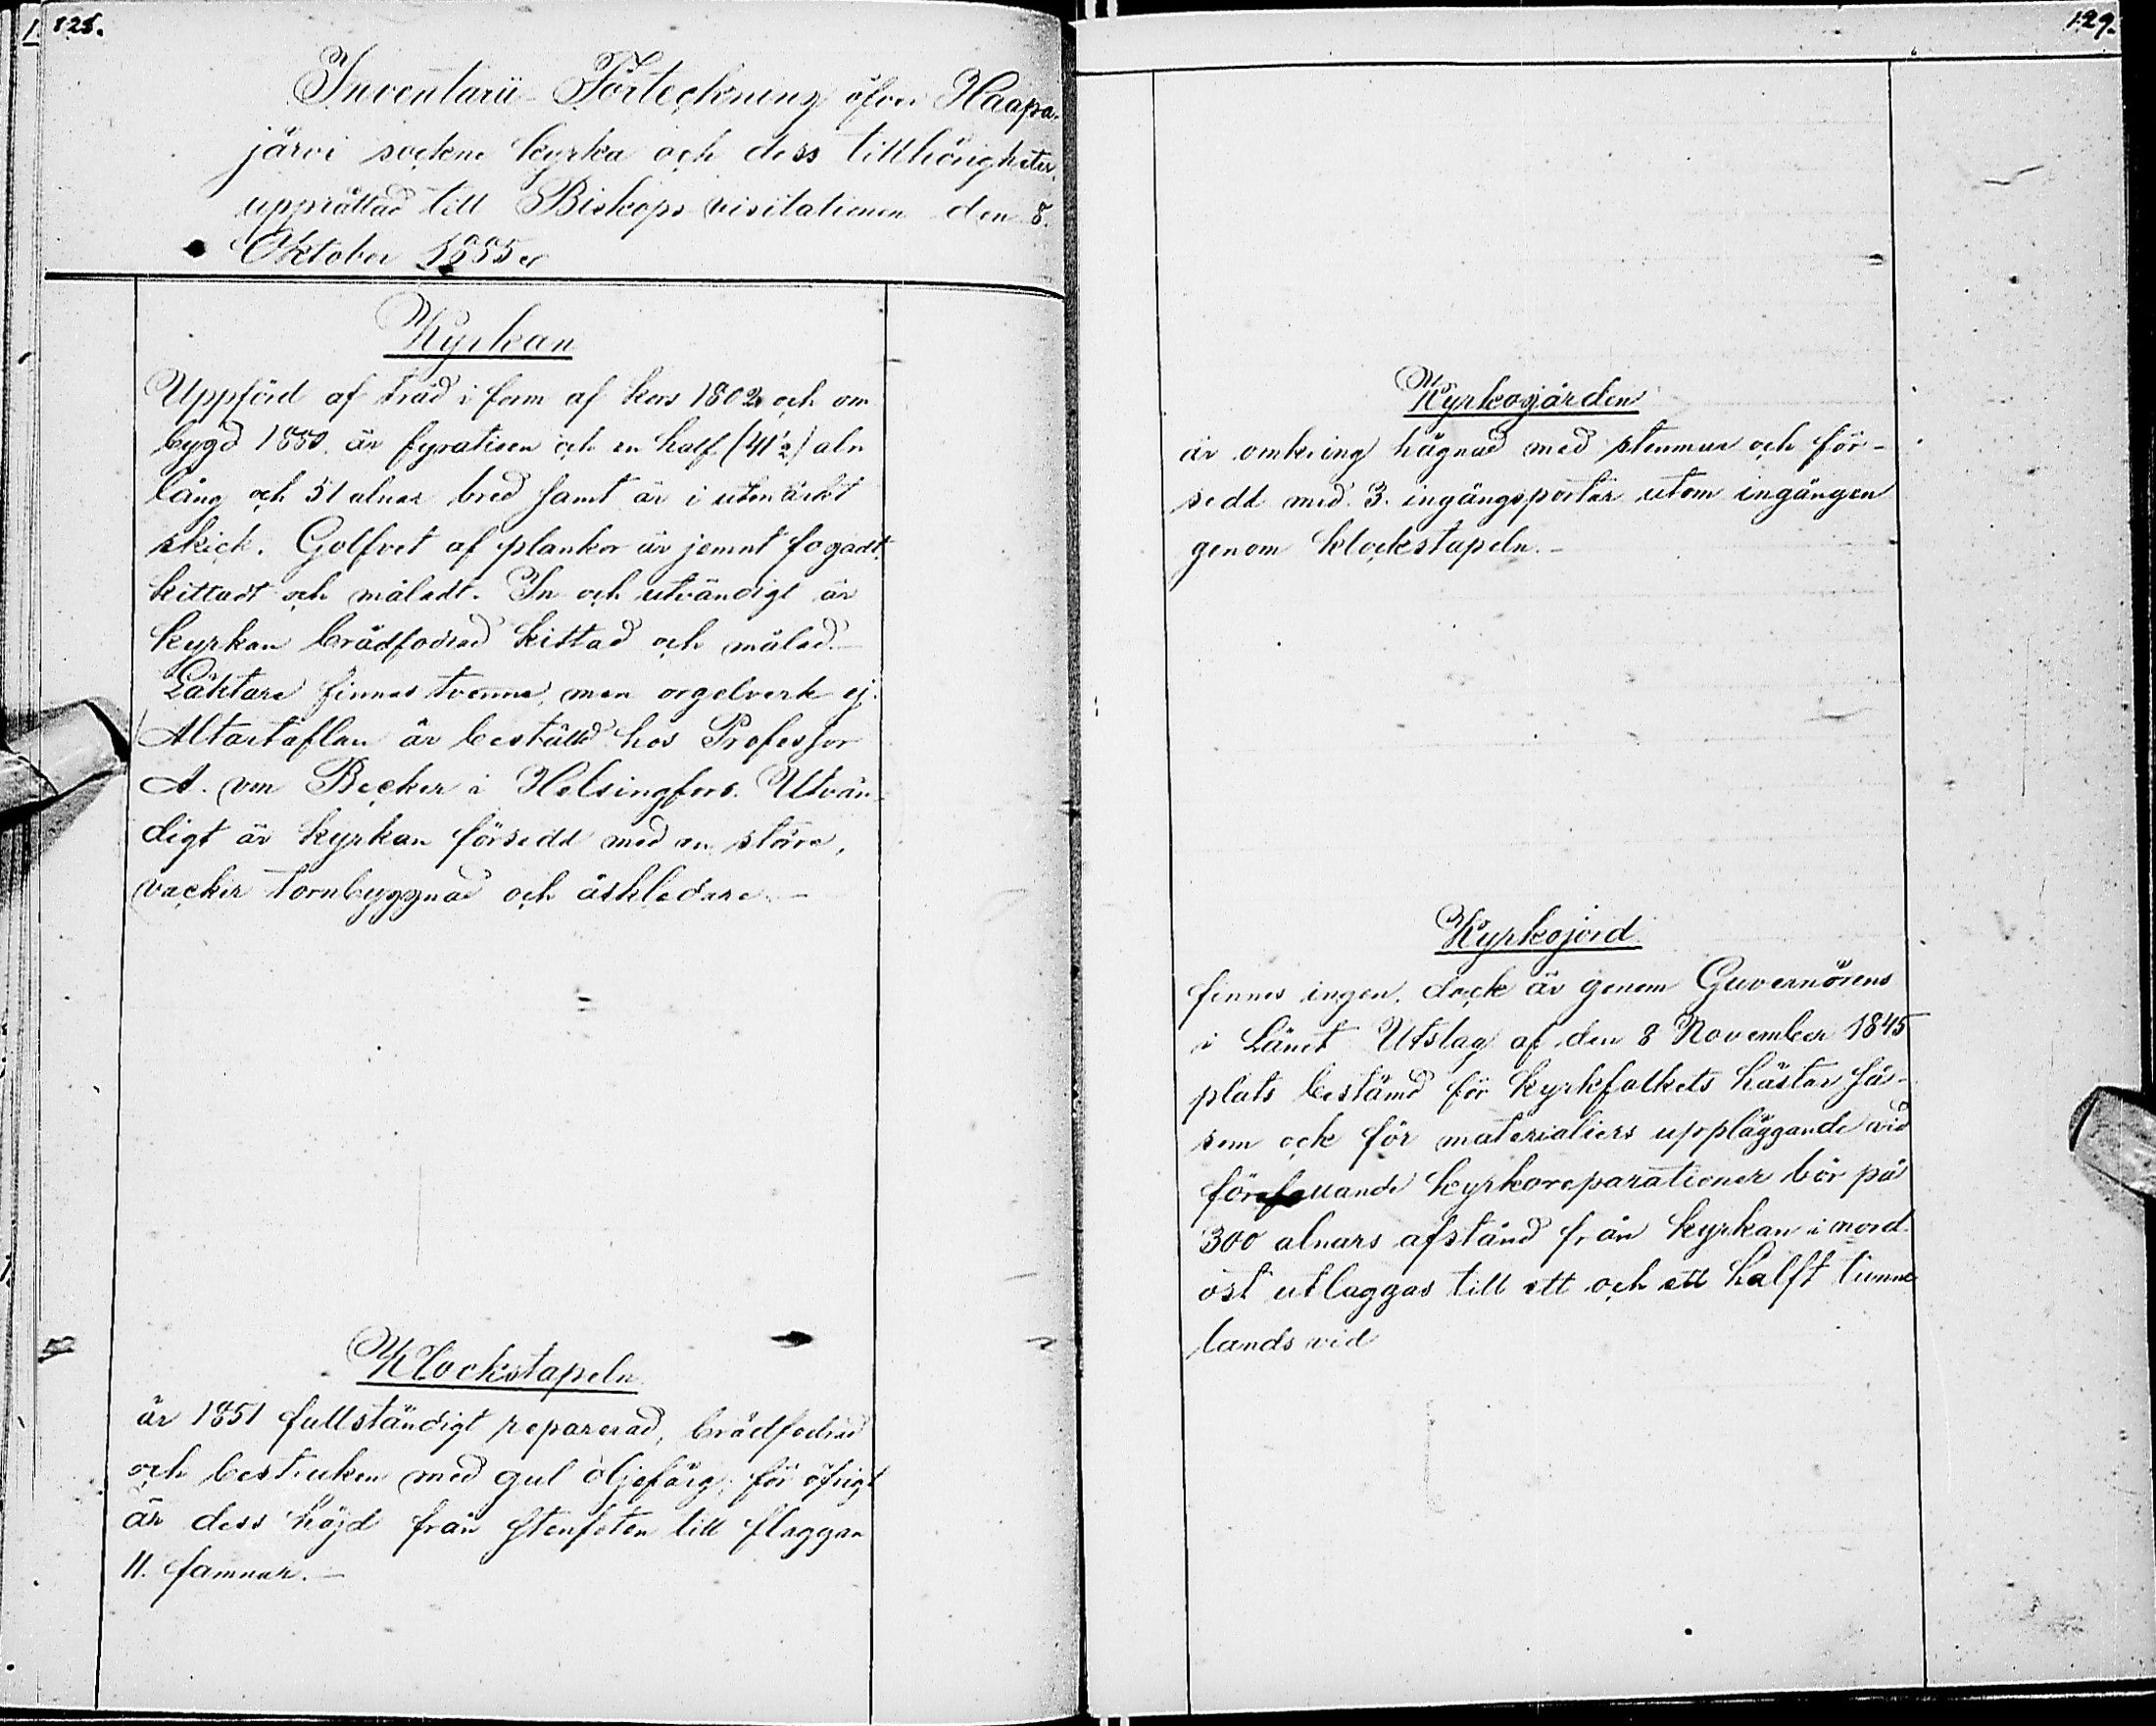 125.
Inventarii-Förteckning öfver Haapa-
järvi sockne kyrka och dess tillhörigheter,
upprättad till Biskops visitationen den 8.
Oktober 1885
Kyrkan
Uppförd af träd i form af kors 1802 och om
bygd 1880. är fyratioen och en half (41½) aln
lång och 51 alnar bred samt är i utmärkt
skick. Golfvet af plankor är jemnt fogadt,
kittadt och måladt. In och utvändigt är
kyrkan brädfodrad kittad och målad.-
Läktare finnes tvenne, men orgelverk ej.
Altartaflan är beställd hos Professor
A. von Becker i Helsingfors. Utvän-
digt är kyrkan försedd med en större,
vacker tornbyggnad och åskledare.-
Klockstapeln
är 1851 fullständigt reparerad, brädfodrad
och bestruken med gul oljefärg; för öfrigt
är dess höjd från stenfoten till flaggan
11. famnar.-
129.
Kyrkogården
är omkring hägnad med stenmur och för-
sedd med 3. ingångsportar utom ingången
genom klockstapeln.-
Kyrkojord
finnes ingen, dock är genom Guvernörens
i Länet Utslag af den 8 November 1845
plats bestämd för kyrkfolkets hästar så-
som ock för materialiers uppläggande vid
förefallande kyrkoreparationer bör på
300 alnars afstånd från kyrkan i nord-
ost utläggas till ett och ett halft tunne
lands vid